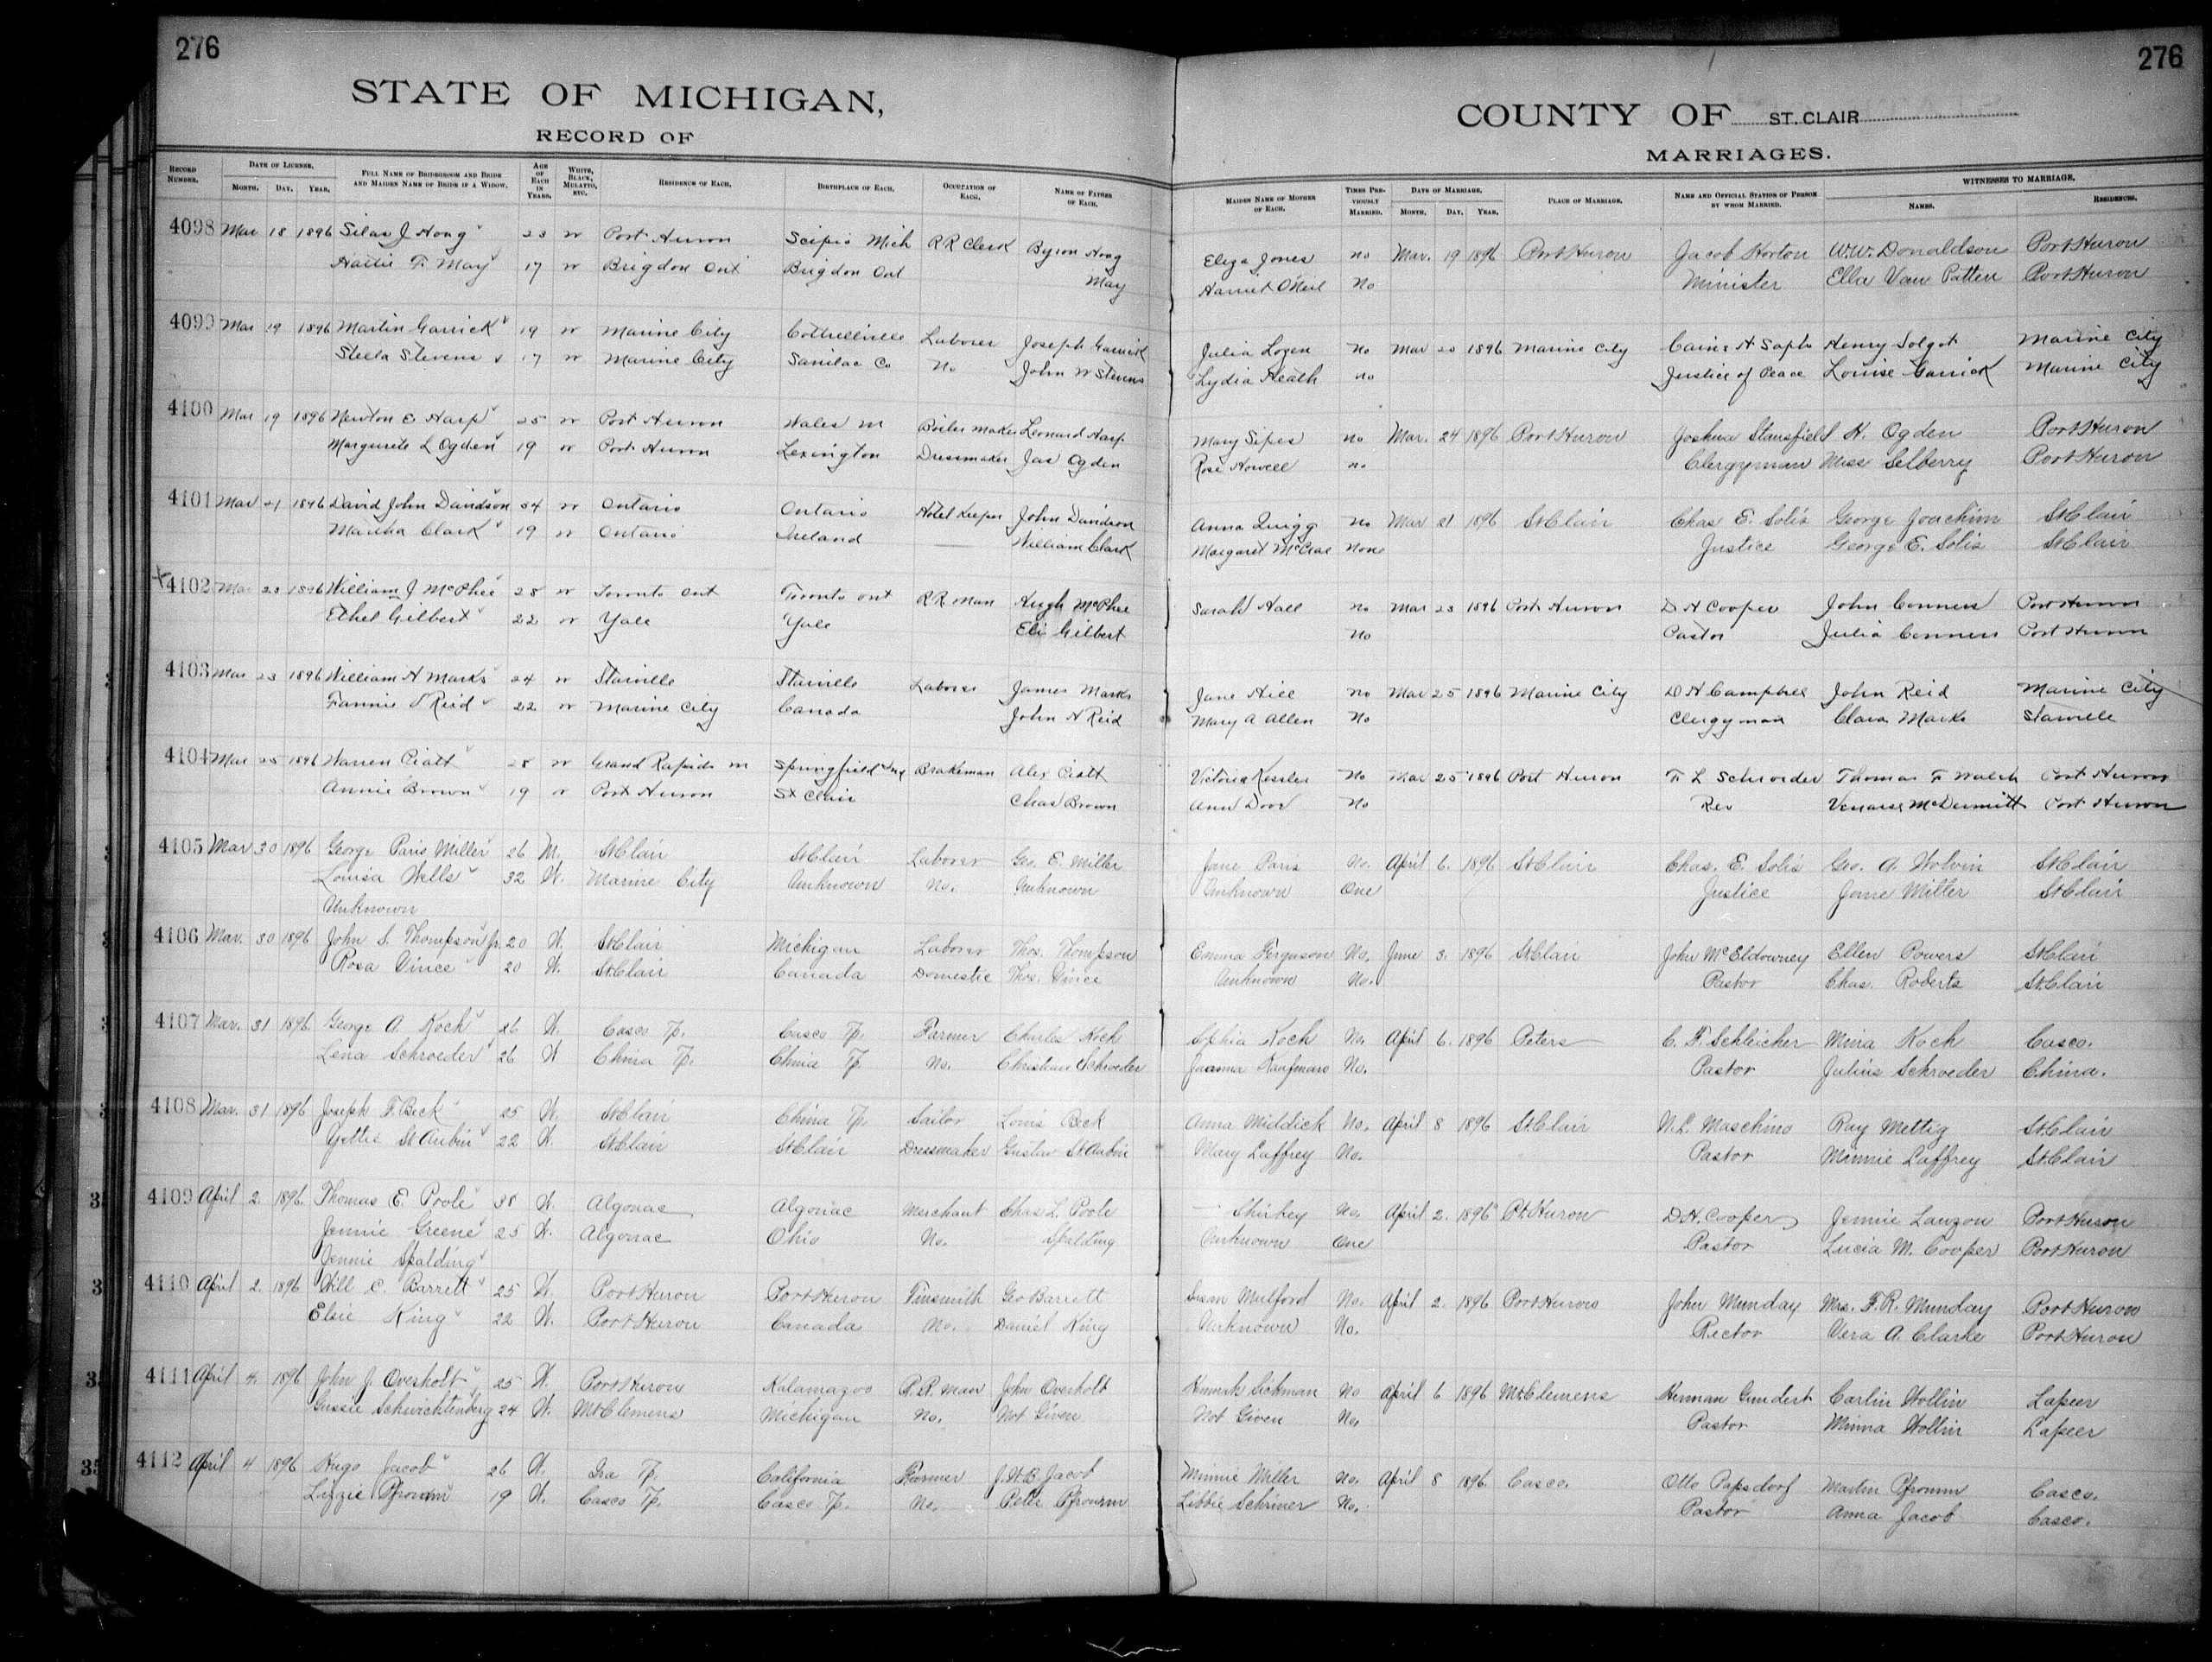 276
276
STATE OF MICHIGAN,
COUNTY OF ST. CLAIR
RECORD OF
MARRIAGES.
RECORD NUMBER. DATE OF LICENSE. MONTH. DAY. YEAR. FULL NAME OF BRIDEGROOM AND BRIDE AND MAIDEN NAME OF BRIDE IF A WIDOW. AGE OF EACH IN YEARS. WHITE, BLACK, MULATTO, ETC. RESIDENCE OF EACH. BIRTHPLACE OF EACH. OCCUPATION OF EACH. NAME OF FATHER OF EACH. MAIDEN NAME OF MOTHER OF EACH. TIMES PREVIOUSLY MARRIED. DATE OF MARRIAGE. MONTH. DAY. YEAR. PLACE OF MARRIAGE. NAME AND OFFICIAL STATION OF PERSON BY WHOM MARRIED. WITNESSES TO MARRIAGE. NAMES. RESIDENCES.
4098 Mar 18 1896 Silas J Hoag 23 W Port Huron Scipio Mich RR Clerk Byron Hoag Eliza Jones no Mar. 19 1896 Port Huron Jacob Horton W.W. Donaldson Port Huron
Hattie F. May 17 W Brigdon Ont Brigdon Ont May Harriet O'Neil No Minister Ella Van Patten Port Huron
4099 Mar 19 1896 Martin Garrick 19 W Marine City Cottrellville Laborer Joseph Garrick Julia Lozen No Mar 20 1896 Marine City Henry Marine City
Stella Stevens 17 W Marine City Sanilac Co No John W Stevens Lydia Heath no Justice of Peace Louise Garrick Marine City
4100 Mar 19 1896 Newton E Harp 25 W Port Huron Wales M Boiler maker Leonard Harp Mary Sipes no Mar. 24 1896 Port Huron Joshua Stansfield H. Ogden Port Huron
Margurete L Ogden 19 W Port Huron Lexington Dressmaker Jas Ogden Rose Howell no Clergyman Miss Selberry Port Huron
4101 Mar 21 1896 David John Davidson 34 W Ontario Ontario Hotel Keeper John Davidson Anna Quigg No Mar 21 1896 St Clair Chas E. Solis George Joachim St Clair
Martha Clark 19 W Ontario Ireland William Clark Margaret McCrae None Justice George E. Solis St Clair
4102 Mar 23 1896 William J McPhee 28 W Toronto Ont Toronto Ont RR Man Hugh McPhee Sarah Hall no Mar 23 1896 Port Huron D H Cooper John Conners Port Huron
Ethel Gilbert 22 W Yale Yale Eli Gilbert No Pastor Julia Conners Port Huron
4103 Mar 23 1896 William H Marks 24 W Starville Starville Laborer James Marks Jane Hill no Mar 25 1896 Marine City D A Campbell John Reid Marine City
Fannie J Reid 22 W Marine City Canada John N Reid Mary A Allen No Clergyman Clara Marks Starville
4104 Mar 25 1896 Warren Ciatt 28 W Grand Rapids M Springfield Brakeman Alex Ciatt Victoria Kessler No Mar 25 1896 Port Huron F L Schroeder Thomas F Walsh Port Huron
Annie Brown 19 W Port Huron St Clair Chas Brown Ann Door No Rev McDermitt Port Huron
4105 Mar 30 1896 George Paris Miller 26 M. St Clair St Clair Laborer Geo. E. Miller Jane Paris No. April 6. 1896 St Clair Chas. E. Solis Geo. A. Wolvin St Clair
Louisa Wells 32 W. Marine City Unknown No. Unknown Unknown One Justice Jane Miller St Clair
Unknown
4106 Mar. 30 1896 John S. Thompson Jr. 20 W. St Clair Michigan Laborer Thos. Thompson Emma Ferguson No. June 3. 1896 St Clair John McEldowney Ellen Powers St Clair
Rosa Vince 20 W. St Clair Canada Domestic Thos. Vince Unknown No. Pastor Chas. Roberts St Clair
4107 Mar. 31 1896 George A. Koch 26 W. Casco Tp. Casco Tp. Farmer Charles Koch Sophia Koch No. April 6. 1896 Peters C. F. Schleicher Mina Koch Casco.
Lena Schroeder 26 W China Tp. China Tp. No. Christian Schroeder Joanna Kaufmann No. Pastor Julius Schroeder China.
4108 Mar. 31 1896 Joseph F. Beck 25 W. St Clair China Tp. Sailor Louis Beck Anna Middick No. April 8 1896 St Clair N.L. Maschino Ray Mettig St Clair
Gettie St Aubin 22 W. St Clair St Clair Dressmaker Gustav St Aubin Mary Laffrey No. Pastor Minnie Laffrey St Clair
4109 April 2. 1896. Thomas E. Poole 38 W. Algonac Algonac Merchant Chas L. Poole Shirkey No. April 2. 1896 Pt. Huron D.H. Cooper Jennie Lanzon Port Huron
Jennie Greene 25 W. Algonac Ohio No. Spalding Unknown One Pastor Lucia M. Cooper Port Huron
Jennie Spalding
4110 April 2. 1896 Will C. Barrett 25 W. Port Huron Port Huron Tinsmith Geo Barrett Susan Mulford No. April 2. 1896 Port Huron John Munday Mrs. F.R. Munday Port Huron
Elsie King 22 W. Port Huron Canada No. Daniel King Unknown No. Rector Vera A. Clarke Port Huron
4111 April 4. 1896 John J. Overholt 25 W. Port Huron Kalamazoo R.R. Man John Overholt Hannah Sickman No April 6 1896 Mt Clemens Herman Gundert Carlin Wollin Lapeer
Gussie Schwichtenberg 24 W. Mt Clemens Michigan No. Not Given Not Given No. Pastor Minna Wollin Lapeer
4112 April 4 1896 Hugo Jacob 26 W. Ira Tp. California Farmer J.H.B. Jacob Minnie Miller No. April 8 1896. Casco. Otto Papsdorf Martin Pfromm Casco.
Lizzie Pfromm 19 W. Casco Tp. Casco Tp. No. Peter Pfromm Libbie Schriner No. Pastor Anna Jacob Casco.